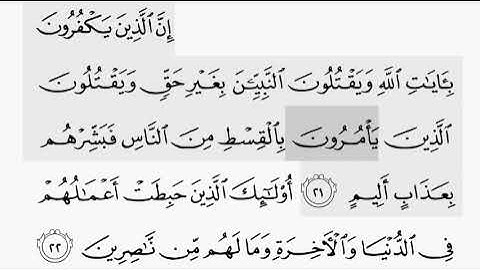 إِنَّ ٱلَّذِينَ يَكۡفُرُونَ
بِـَٔايَٰتِ ٱللَّهِ وَيَقۡتُلُونَ ٱلنَّبِيِّـۧنَ بِغَيۡرِ حَقّٖ وَيَقۡتُلُونَ
ٱلَّذِينَ يَأۡمُرُونَ بِٱلۡقِسۡطِ مِنَ ٱلنَّاسِ فَبَشِّرۡهُم
بِعَذَابٍ أَلِيمٍ ٢١ أُوْلَٰٓئِكَ ٱلَّذِينَ حَبِطَتۡ أَعۡمَٰلُهُمۡ
فِي ٱلدُّنۡيَا وَٱلۡأٓخِرَةِ وَمَا لَهُم مِّن نَّٰصِرِينَ ٢٢